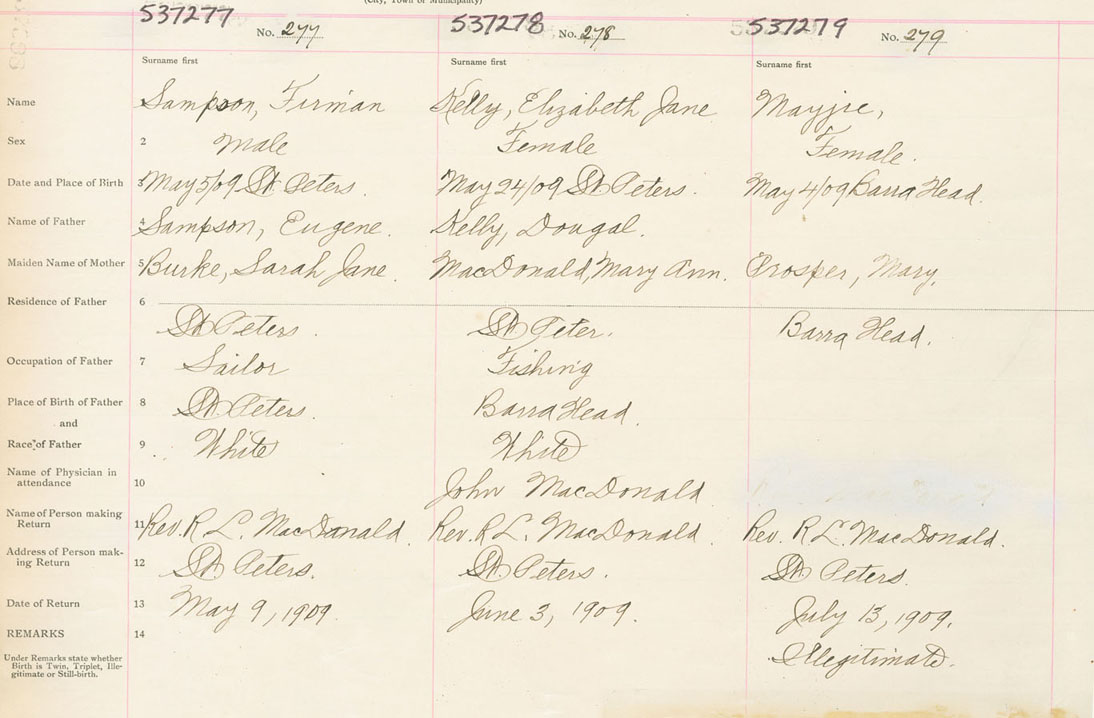 (City, Town or Municipality)
537277 537278 537279
No. 277 No. 278 No. 279
Surname first Surname first Surname first
Name 1 Sampson, Firman Kelly, Elizabeth Jane Mayjie,
Sex 2 Male Female Female.
Date and Place of Birth 3 May 5/09 St. Peters. May 24/09 St. Peters. May 4/09 Barra Head.
Name of Father 4 Sampson, Eugene. Kelly, Dougal.
Maiden Name of Mother 5 Burke, Sarah Jane. MacDonald, Mary Ann. Prosper, Mary.
Residence of Father 6
St. Peters. St. Peter. Barra Head.
Occupation of Father 7 Sailor Fishing
Place of Birth of Father 8 St. Peters. Barra Head.
and
Race of Father 9 White White
Name of Physician in
attendance 10 John MacDonald
Name of Person making
Return 11 Rev. R L. MacDonald. Rev. R L. MacDonald. Rev. R L. MacDonald.
Address of Person mak-
ing Return 12 St. Peters. St. Peters. St. Peters.
Date of Return 13 May 9, 1909. June 3, 1909. July 13, 1909.
REMARKS 14
Under Remarks state whether
Birth is Twin, Triplet, Ille-
gitimate or Still-birth.
Illegitimate.